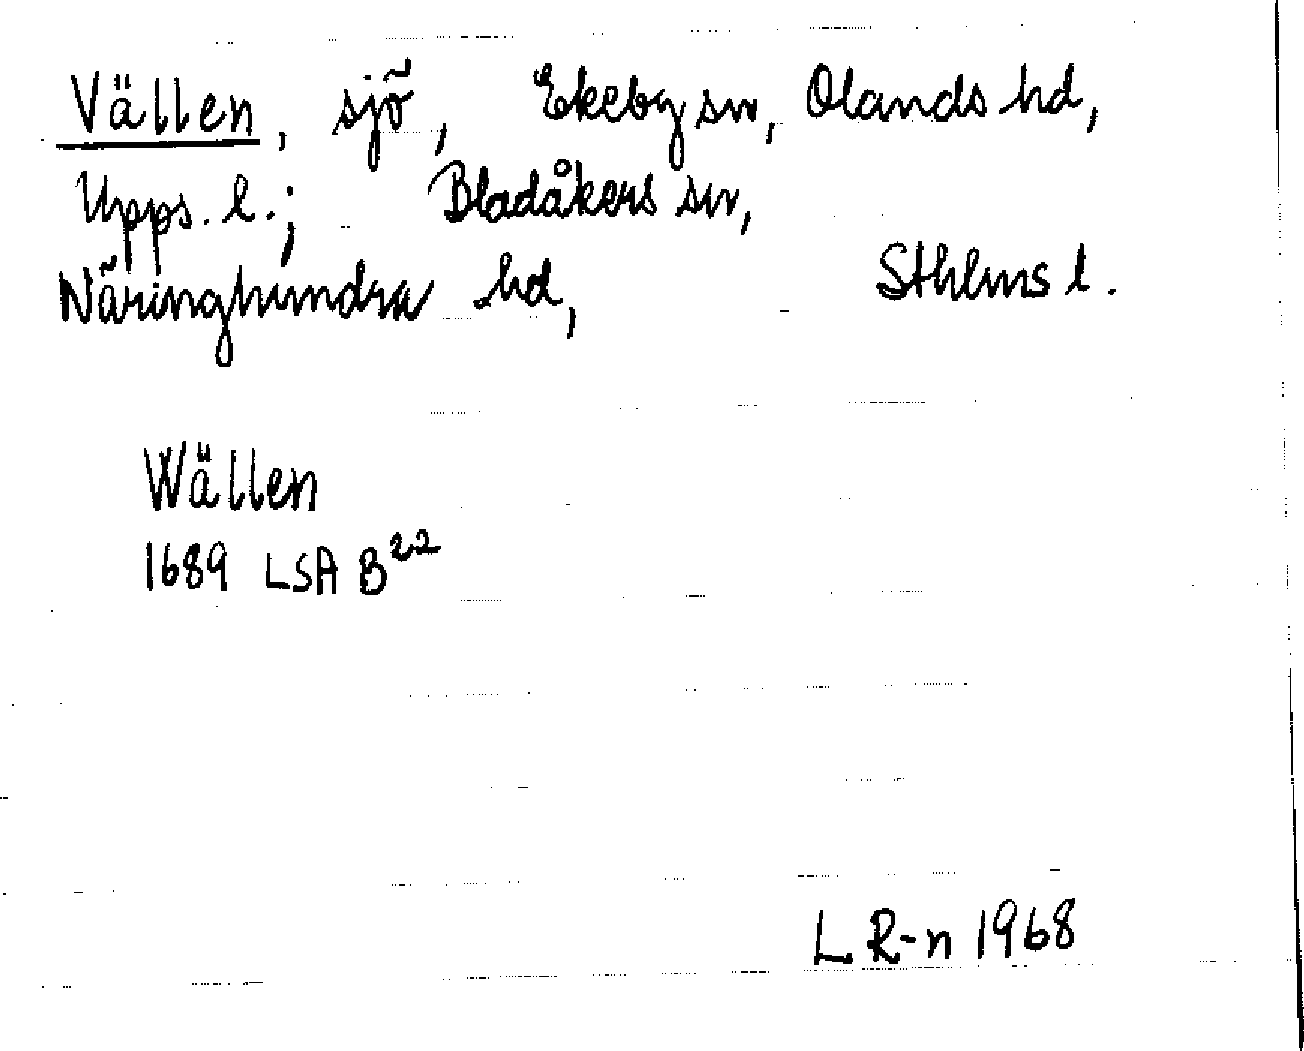 Vällen, sjö, Ekeby sn, Olands hd,
Upps. l.; Bladåkers sn,
Näringhundra hd, Sthlms l.
Wällen
1689 LSA B22
L R-n 1968